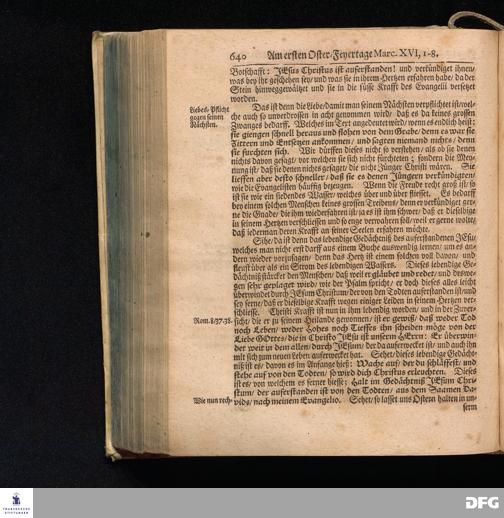 640 Am ersten Oster-Feyertage Marc. XVI, 1-8.
Botschafft: JEsus Christus ist auferstanden! und verkündiget ihnen/
was bey ihr geschehen sey/ und was sie in ihrem Hertzen erfahren habe/ da der
Stein hinweggeweltzet und sie in die süsse Krafft des Evangelii versetzet
worden.
Liebes-Pflicht
gegen seinen
Nächsten.
Das ist denn die Liebe/ damit man seinem Nächsten verpflichtet ist/ wel-
che auch so unverdrossen in acht genommen wird/ daß es da keines grossen
Zwanges bedarff. Welches im Text angedeutet wird/ wenn es endlich heist:
sie giengen schnell heraus und flohen von dem Grabe/ denn es war sie
Zittern und Entsetzen ankommen/ und sagten niemand nichts/ denn
sie furchten sich. Wir dürffen dieses nicht so verstehen/ als ob sie denen
nichts davon gesagt/ vor welchen sie sich nicht fürchteten; sondern die Mey-
nung ist/ daß sie denen nichts gesaget/ die nicht Jünger Christi wären. Sie
lieffen aber desto schneller/ daß sie es denen Jüngern verkündigten/
wie die Evangelisten häuffig bezeugen. Wenn die Freude recht groß ist/ so
ist sie wie ein siedendes Wasser/ welches über und über fliesset. Es bedarff
bey einem solchen Menschen keines grossen Treibens/ denn er verkündiget ger-
ne die Gnade/ die ihm wiederfahren ist; ja es ist ihm schwer/ daß er dieselbige
in seinem Hertzen verschliessen und so enge verwahren soll/ weil er gerne wolte/
daß iederman deren Krafft an seiner Seelen erfahren möchte.
Sihe/ da ist denn das lebendige Gedächtniß des auferstandenen JEsu/
welches man nicht erst darff aus einem Buche auswendig lernen/ und es an-
dern wieder vorzusagen/ denn das Hertz ist einem solchen voll davon/ und
fleust über als ein Strom des lebendigen Wassers. Dieses lebendige Ge-
dächtniß stärcket den Menschen/ daß weil er gläubet und redet/ und deswe-
gen sehr geplaget wird/ wie der Psalm spricht/ er doch dieses alles leicht
überwindet durch JEsum Christum/ der von den Todten auferstanden ist/ und
sey ferne/ daß er dieselbige Krafft wegen einiger Leiden in seinem Hertzen ver-
schliesse. Christi Krafft ist nun in ihm lebendig worden/ und in der Zuver-
Rom. 8/37.38.
sicht/ die er zu seinem Heilande gewonnen/ ist er gewiß/ daß weder Tod
noch Leben/ weder Hohes noch Tieffes ihn scheiden möge von der
Liebe GOttes/ die in Christo JEsu ist unserm HErrn: Er überwin-
der weit in dem allen/ durch JEsum/ der da auferwecket ist/ und auch ihn
mit sich zum neuen Leben auferwecket hat. Sehet/ dieses lebendige Gedächt-
niß ist es/ davon es im Anfange hieß: Wache auf/ der du schläffest/ und
stehe auf von den Todten/ so wird dich Christus erleuchten. Dieses
ist es/ von welchem es ferner hiesse: Halt im Gedächtniß JEsum Chri-
stum/ der auferstanden ist von den Todten/ aus dem Saamen Da-
Wie nun rech-
vids/ nach meinem Evangelio. Sehet/ so lasset uns Ostern halten in un-
serm
FRANCKESCHE
STIFTUNGEN
DFG